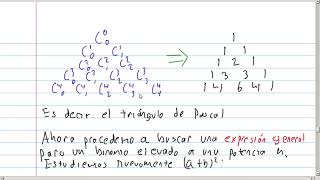 C⁰₀ 1
C¹₀ C¹₁ ⇒ 1 1
C²₀ C²₁ C²₂ 1 2 1
C³₀ C³₁ C³₂ C³₃ 1 3 3 1
C⁴₀ C⁴₁ C⁴₂ C⁴₃ C⁴₄ 1 4 6 4 1
Es decir el triángulo de Pascal
Ahora procedemo a buscar una expresión general
para un binomio elevado a una potencia n.
Estudiemos nuevamente (a+b)²: